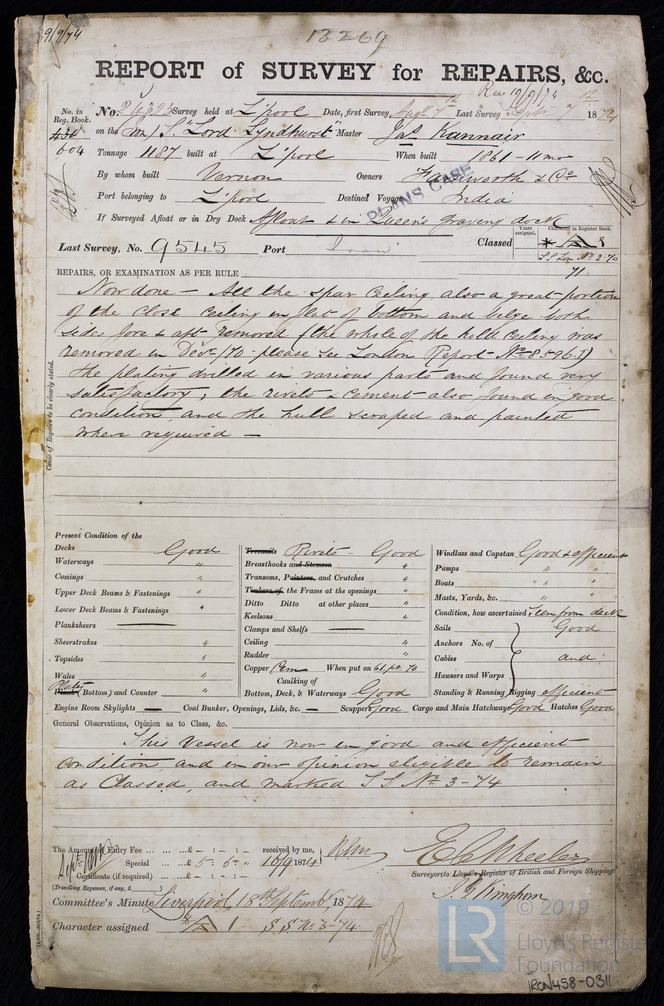 9/9/74
13269
REPORT of SURVEY for REPAIRS, &c.
Rec 10/9/74
No. in Reg. Book. No. 24323 Survey held at L'pool Date, first Survey Septr 7th Last Survey Septr 7th 1874
430 on the Iron S. "Lord Lyndhurst" Master Jas Kannair
604 Tonnage 1187 built at L'pool When built 1861 - 11 mo
By whom built Vernon Owners & Co
Port belonging to L'pool Destined Voyage India
PLAINS CASE
If Surveyed Afloat or in Dry Dock Afloat & in Queen's graving dock
Last Survey, No. 9545 Port Iron Classed
Years assigned. Character in Register Book.
A 1
S S Lon No 2-70
71
REPAIRS, OR EXAMINATION AS PER RULE
Cause of Repairs to be clearly stated.
Now done - All the spar Ceiling, also a great portion
of the close Ceiling in flat of bottom and bilge both
sides fore & aft removed (the whole of the hold Ceiling was
removed in Decr /70 please see London Report No 85961)
the plating drilled in various parts and found very
satisfactory, the rivets & cement also found in good
condition and the hull scraped and painted
where required -
Present Condition of the
Decks Good
Waterways "
Comings "
Upper Deck Beams & Fastenings "
Lower Deck Beams & Fastenings "
Planksheers
Sheerstrakes "
Topsides "
Wales "
Plates (Bottom) and Counter "
Treenails Rivets - Good
Breasthooks and Stemson "
Transoms, Pointers, and Crutches "
Timbers of the Frame at the openings "
Ditto Ditto at other places "
Keelsons "
Clamps and Shelfs
Ceiling "
Rudder "
Copper Cem When put on 61, pt. 70
Caulking of
Bottom, Deck, & Waterways Good
Windlass and Capstan Good & efficient
Pumps " "
Boats " "
Masts, Yards, &c. " "
Condition, how ascertained Seen from deck
Sails Good
Anchors No. of
Cables and
Hawsers and Warps
Standing & Running Rigging efficient
Engine Room Skylights Coal Bunker, Openings, Lids, &c. Scuppers Good Cargo and Main Hatchways Good Hatches Good
General Observations, Opinion as to Class, &c.
This Vessel is now in good and efficient
condition and in our opinion eligible to remain
as Classed, and marked S S No 3-74
The Amount Entry Fee ... £ - : - : received by me,
Special ... £ 5 : 5 : 10/9 1874
Certificate (if required) ... £ - : - :
(Travelling Expenses, if any, £ )
E C Wheeler
Surveyors to Lloyd's Register of British and Foreign Shipping.
Committee's Minute Liverpool 18th September 1874
Character assigned A 1 - S S No 3-74
LR
© 2019
Lloyd's Register
Foundation
IRON458-0311